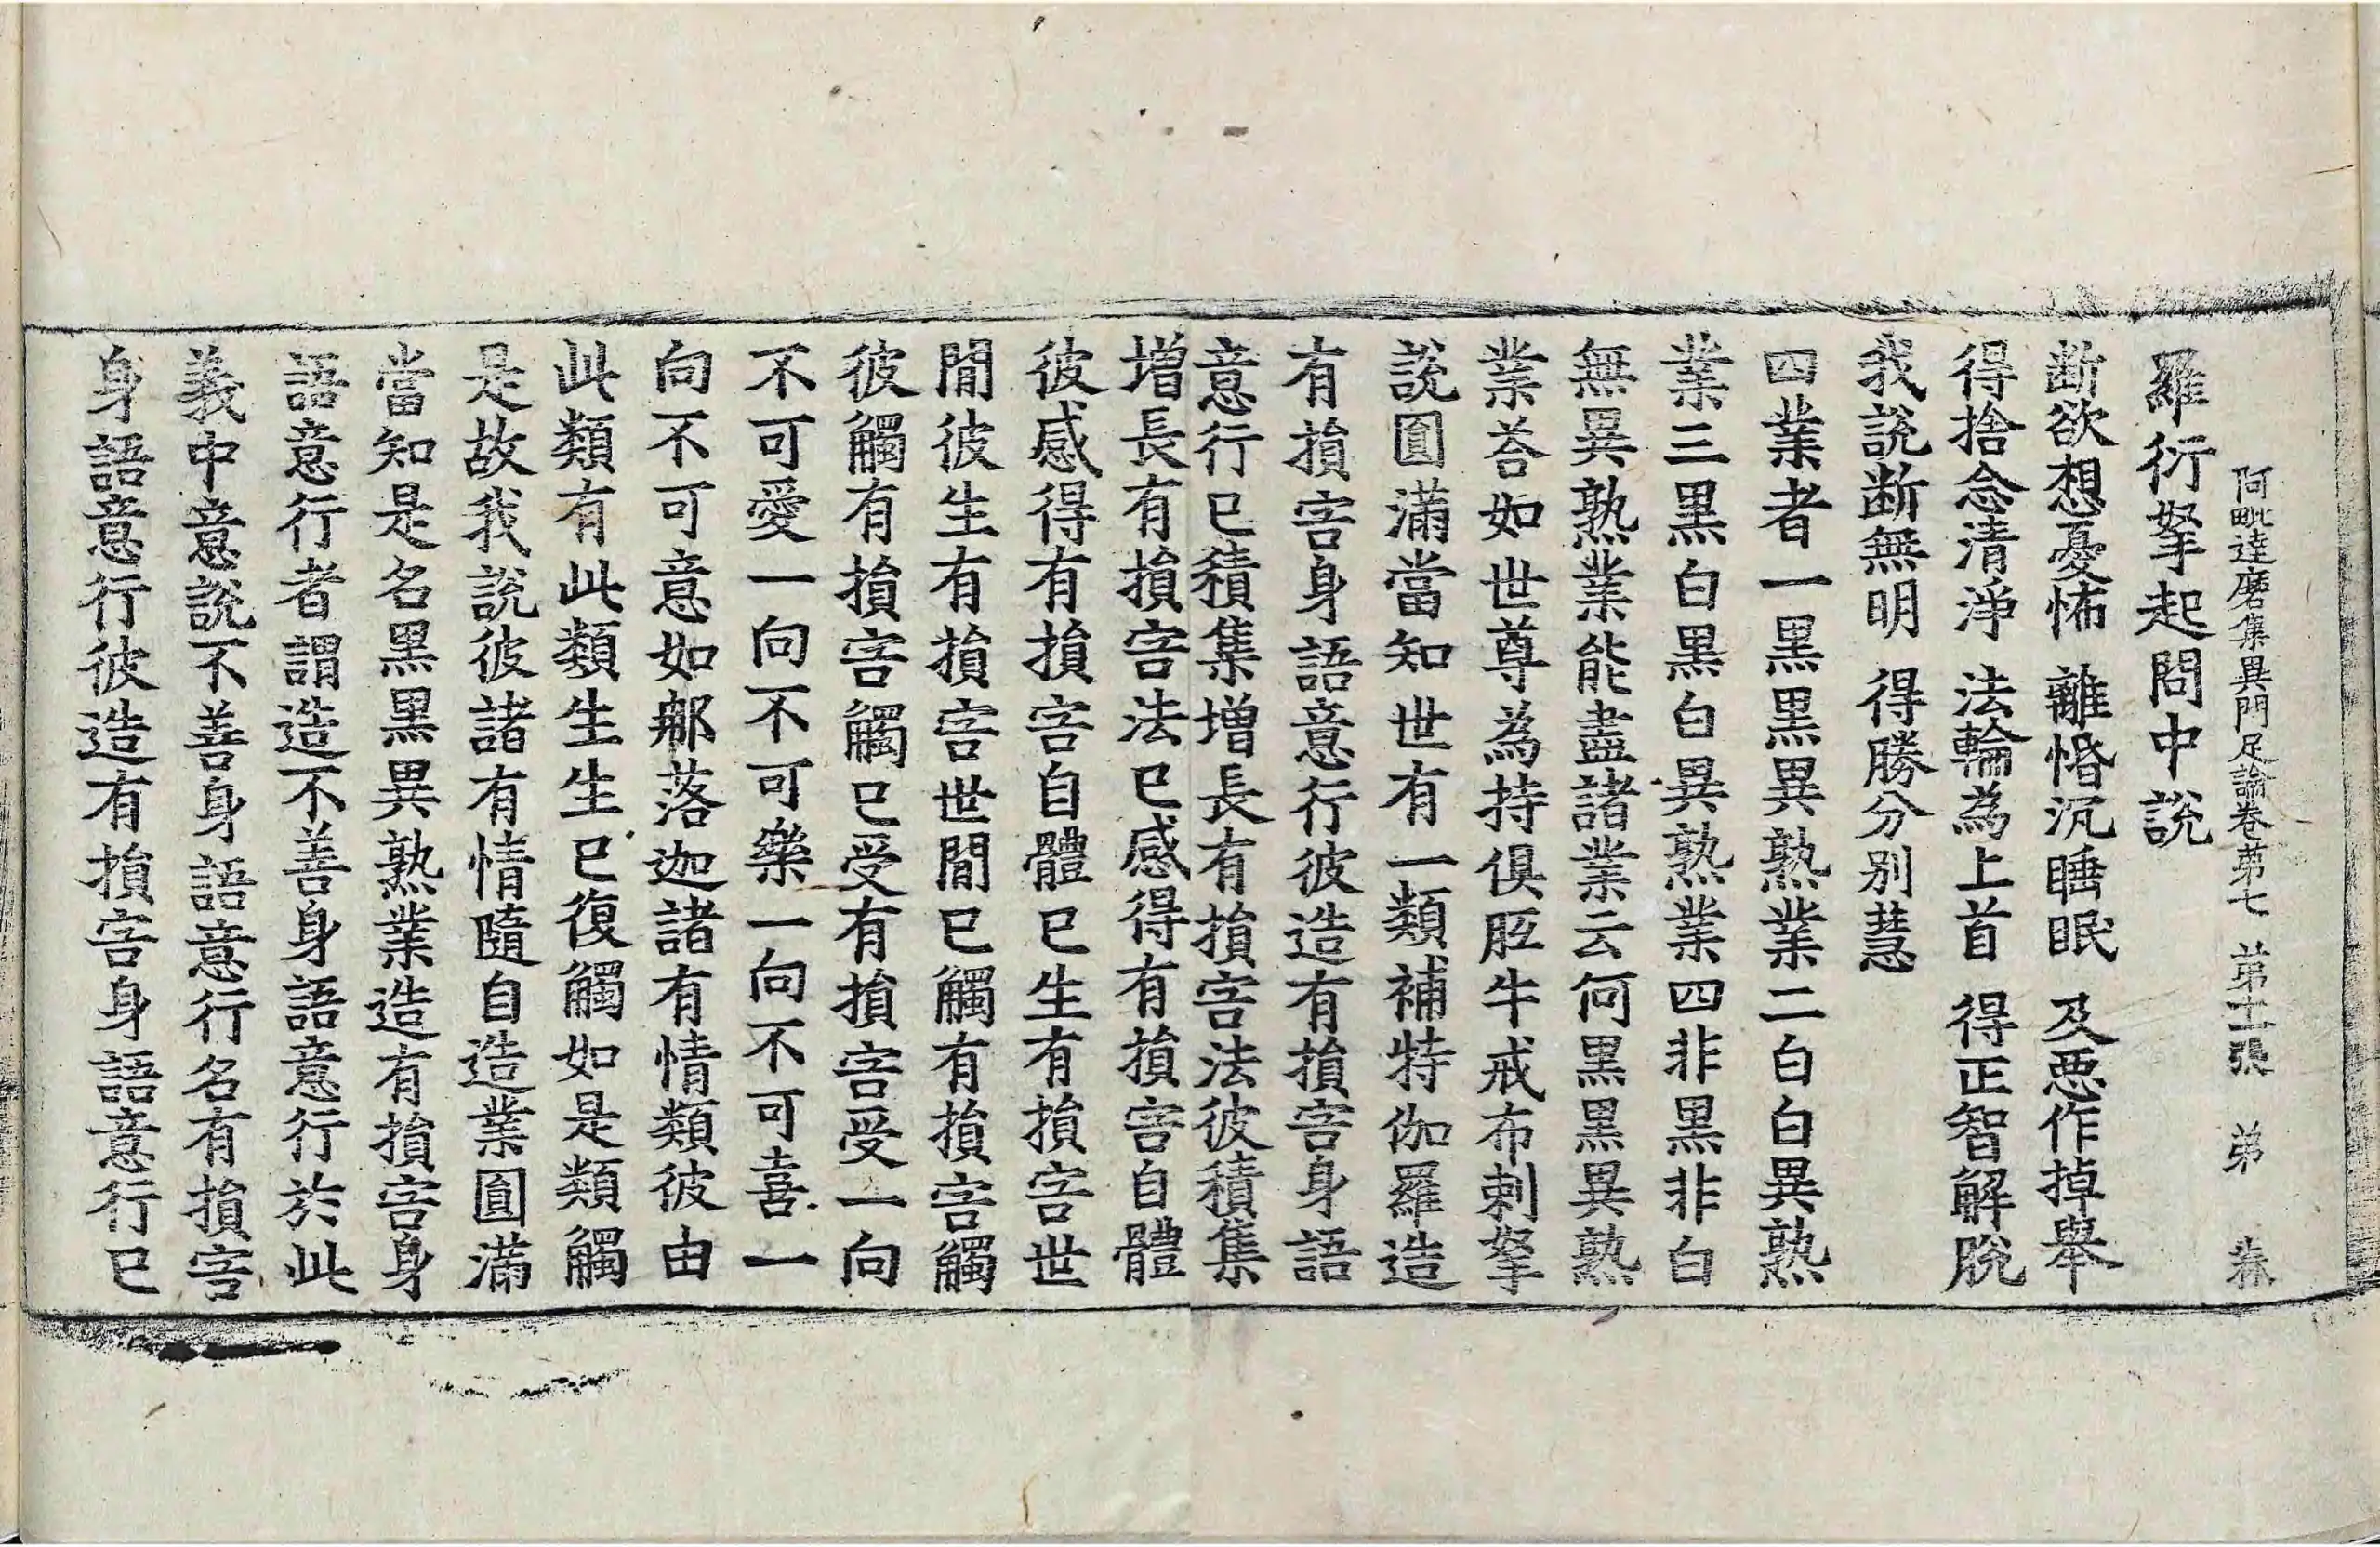 阿毗達磨集異門足論卷苐七 苐十一張 弟
羅衍拏起問中說
断欲想憂怖 離惛沉睡眠 及悪作掉舉
得捨念清淨 法輪為上首 得正智解脫
我說断無明 得勝分別慧
四業者一黒黒異熟業二白白異熟
業三黒白黒白異熟業四非黒非白
無異熟業能盡諸業云何黒黒異熟
業荅如世尊為持俱胝牛戒布剌拏
說圓滿當知世有一類補特伽羅造
有損害身語意行彼造有損害身語
意行已積集增長有損害法彼積集
增長有損害法已感得有損害自體
彼感得有損害自體已生有損害世
間彼生有損害世間已觸有損害觸
彼觸有損害觸已受有損害受一向
不可愛一向不可樂一向不可喜一
向不可意如郍落迦諸有情類彼由
此類有此類生生已復觸如是類觸
是故我說彼諸有情隨自造業圓滿
當知是名黒黒異熟業造有損害身
語意行者謂造不善身語意行於此
義中意說不善身語意行名有損害
身語意行彼造有損害身語意行已